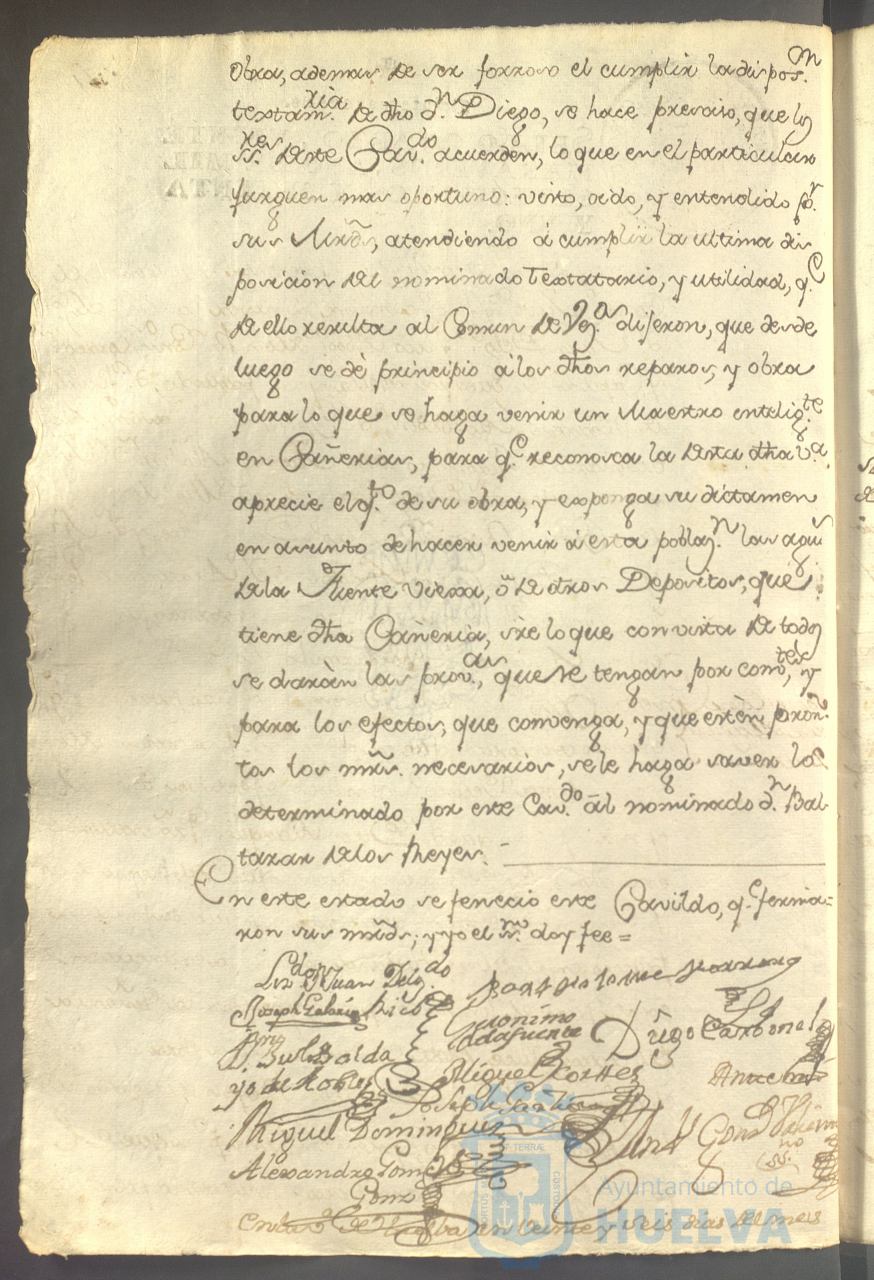 obra, ademas de ser forzoso el cumplir la dispos.n
textam.ria de dho d.n Diego, se hace presiso, que los
ss.res de este Cav.do acuerden, lo que en el particular
jusguen mas oportuno: visto, oido, y entendido p.r
sus Mrds, atendiendo á cumplir la ultima dis
posicion del nominado Testatario, y utilidad, q.e
de ello resulta al Comun de Vez.os dijeron, que desde
luego se dé principio á los dhos reparos, y obra
para lo que se haga venir un Maestro intelig.te
en Cañerias, para q.e reconosca la de esta dha v.a
aprecie el q.to de su obra, y exponga su dictamen
en asunto de hacer venir á esta poblaz.n las aguas
de la Fuente viexa, ó de otros Depositos, que
tiene dha Cañeria, sre lo que con vista de todo
se daràn las prov.as, que se tengan por comb.tes, y
para los efectos, que convenga, y que estèn pron-
tos los mrs. necesarios, se le haga saver lo
determinado por este Cav.do al nominado d.n Bal
tasar de los Reyes.
En este estado se fenecio este Cavildo, q.e firma=
ron sus mrds; y yo el ss.no doy fee=
Liz.do Dn Juan Delg.do
Joseph Gabriel Rico
Geronimo delafuente
Diego Carbonel
yo de Robles
Miguel Cortes
Ante mi
Joseph
Miguel Dominguez
Alexandro Gomez
Gonz
ss.no
En la v.a de Huelba en veinte y seis dias del mes
Ayuntamiento de
HUELVA